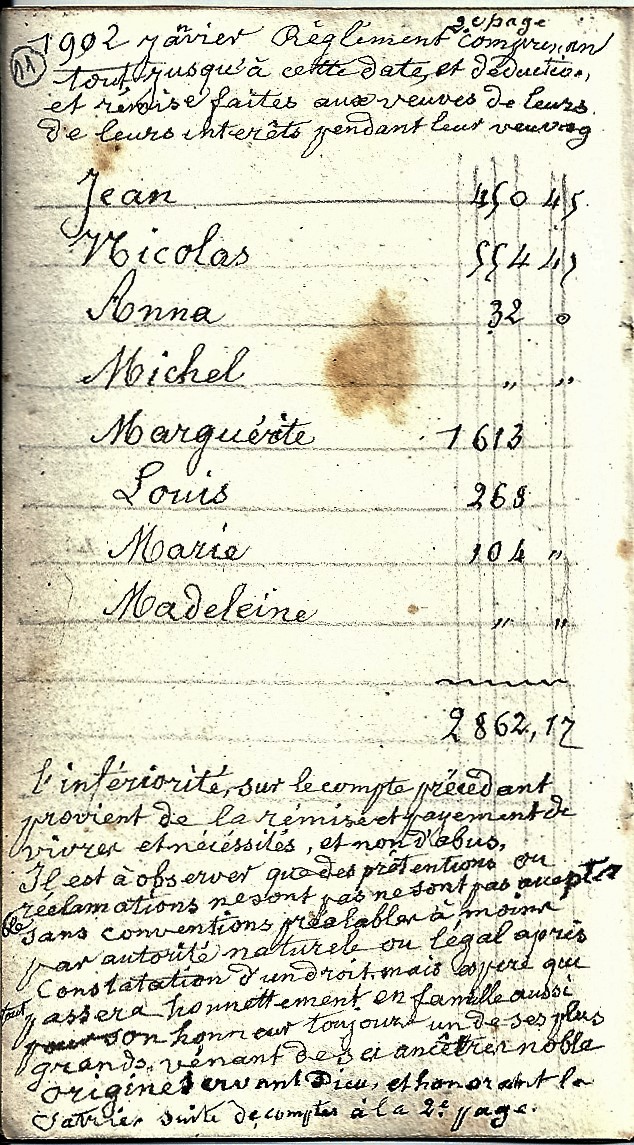 2e page
11
1902 janvier Réglément comprenan
tout jusqu'à cette date, et déduction,
et rémise faites aux veuves de leurs
de leurs interêts pendant leur veuvag
Jean 450 45
Nicolas 554 47
Anna 32 0
Michel " "
Marguérite 1613
Louis 268
Marie 104 "
Madeleine " "
2862,17
l'infériorité, sur le compte précédant
provient de la rémise et payement de
vivres et nécéssités, et non d'abus.
Il est à observer que des prétentions ou
réclamations ne sont pas ne sont pas accepter
sans conventions préalables à moins
par autorité naturele ou légal après
Constatation d'un droit. mais espère que
tout passera honnettement en famille aussi
pour son honneur toujours un de ses plus
grands, vénant de ses ancêtres noble
origine servant Dieu, et honorant la
suite de comptes à la 2e page.